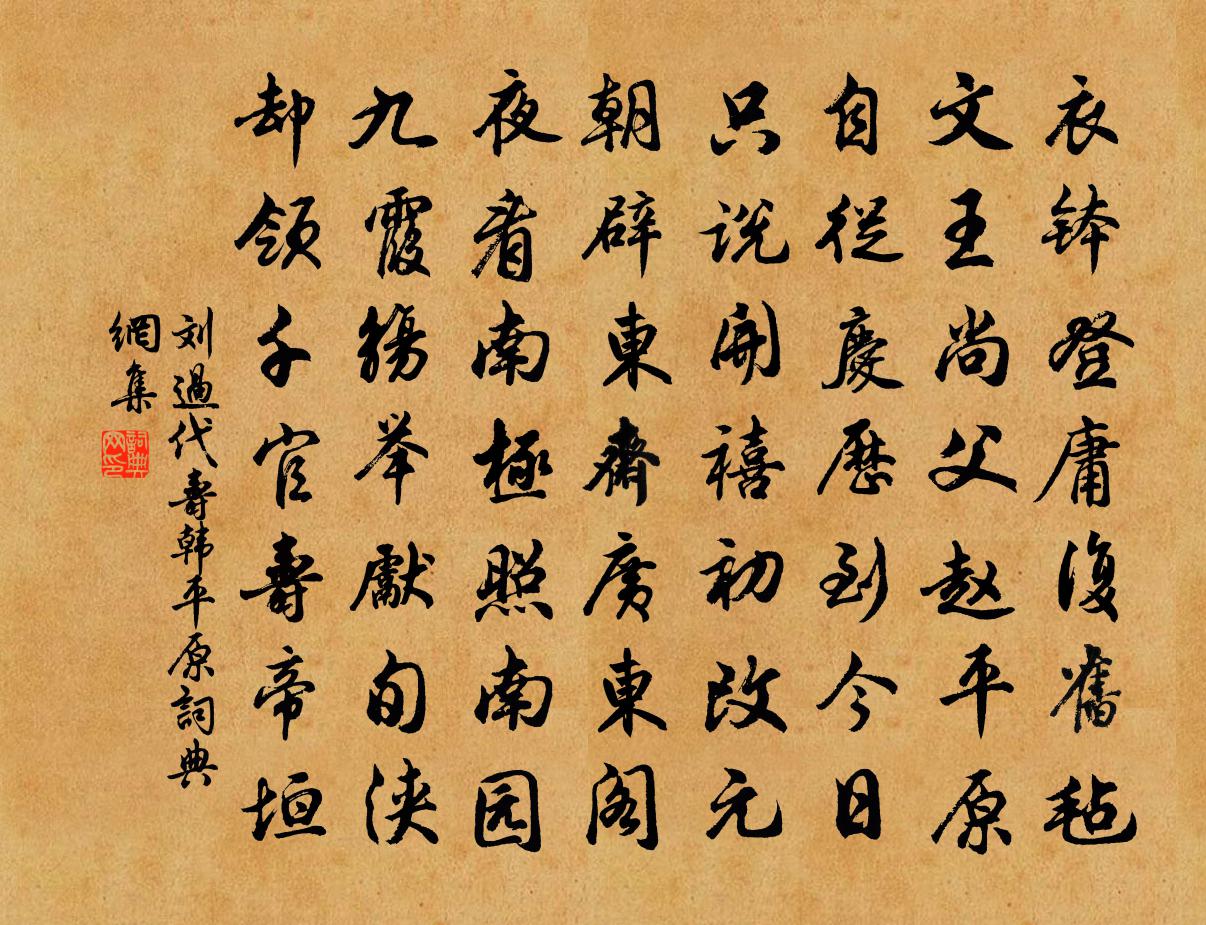 衣钵登庸復舊毡
文王尚父赵平原
自從慶歷到今日
只说開禧初改元
朝辟東齋廣東阁
夜看南極照南园
九霞觴举獻旬浃
却領千官壽帝垣
刘過代壽韩平原詞典
網集
詞典
网印